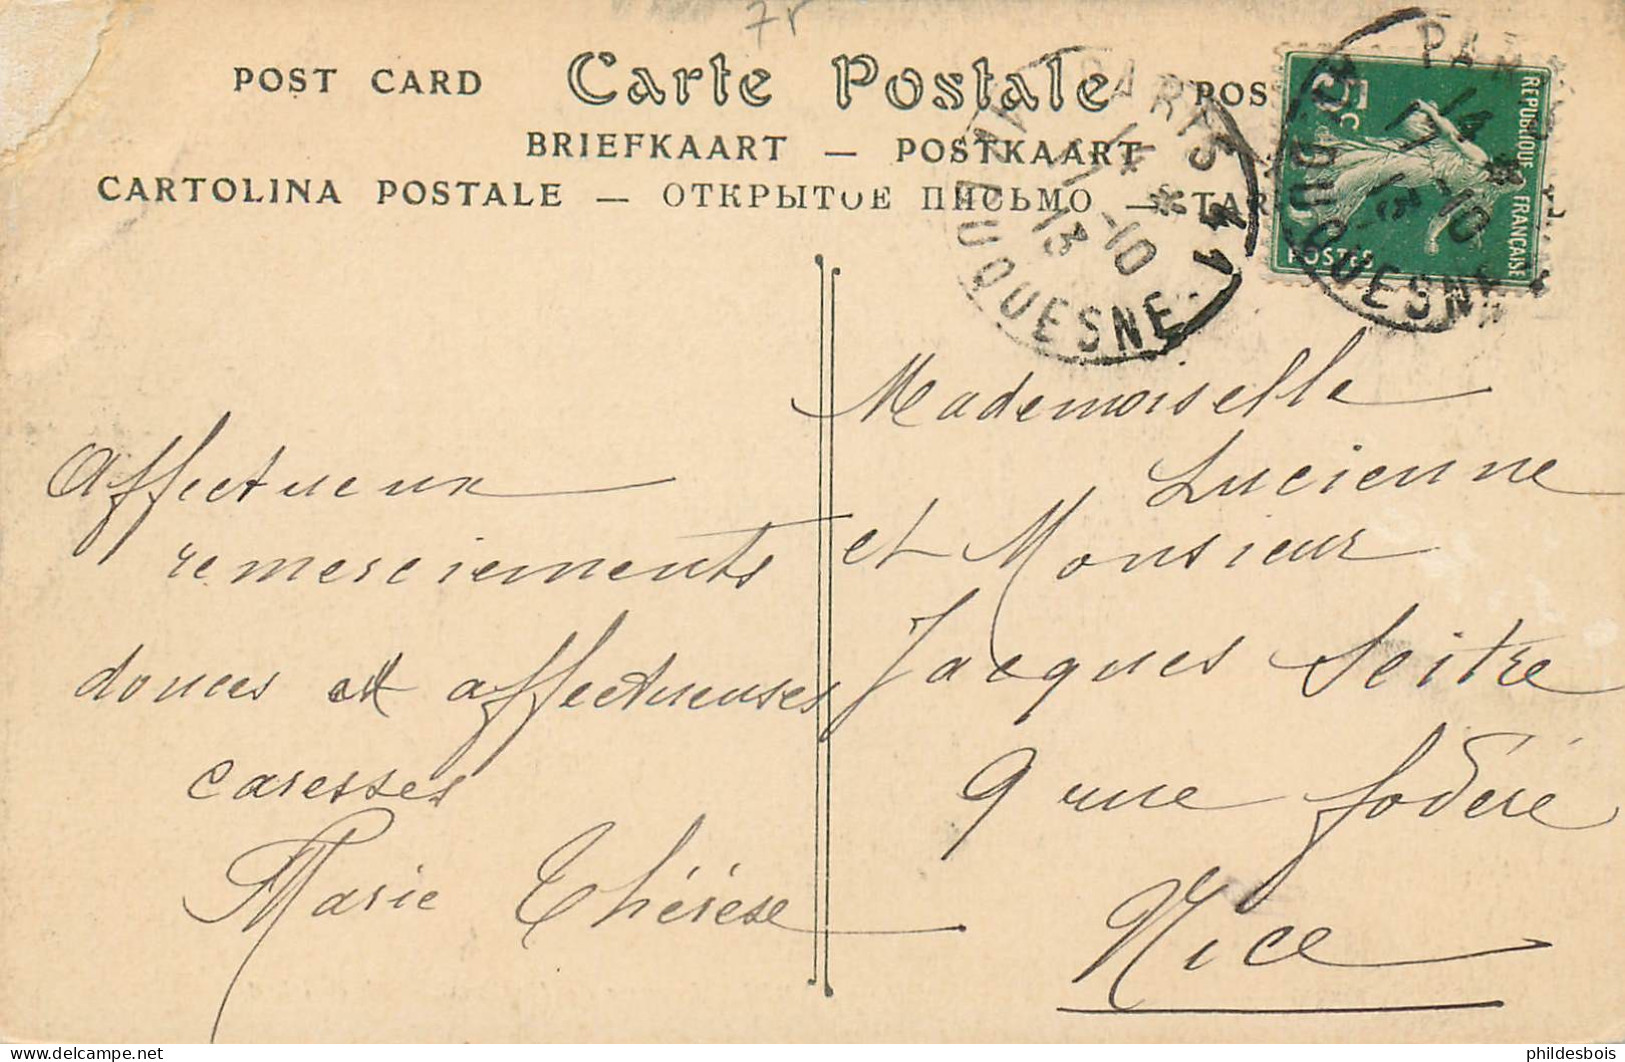 7r
POST CARD Carte Postale POS
BRIEFKAART — POSTKAART
CARTOLINA POSTALE — ОТКРЫТОЕ ПИСЬМО — TAR
PARIS 41
14
17 -10
13
DUQUESNE
REPUBLIQUE FRANÇAISE
5c
POSTES
PARIS
14
17 -10
13
DUQUESNE
Affectueux
remerciements
douces et affectueuses
caresses
Marie Thérèse
Mademoiselle
Lucienne
et Monsieur
Jacques Seitre
9 rue foderé
Nice
phildesbois